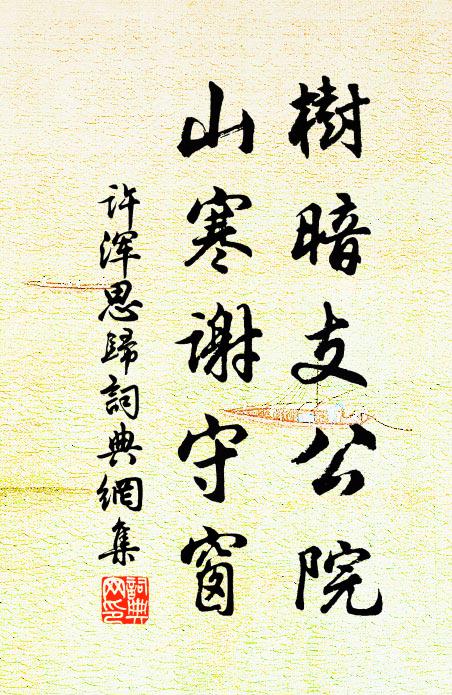 樹暗支公院
山寒谢守窗
许浑思歸詞典網集
詞典网印